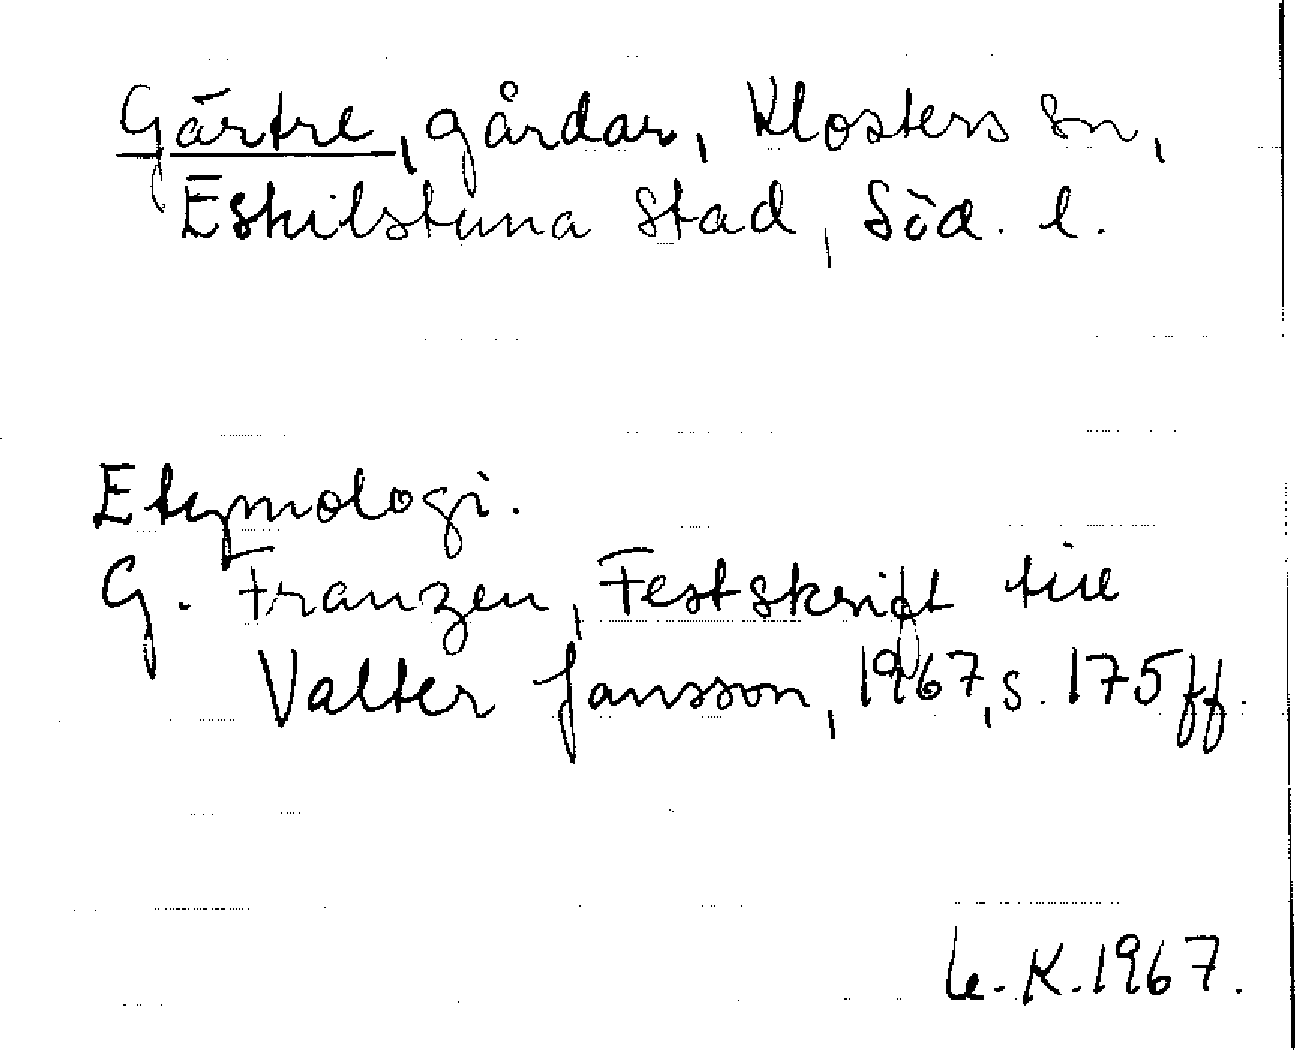 Gärtre, gårdar, Klosters sn,
Eskilstuna stad, Söd. l.
Etymologi.
G. Franzén, Festskrift till
Valter Jansson, 1967, s. 175 ff.
K. 1967.